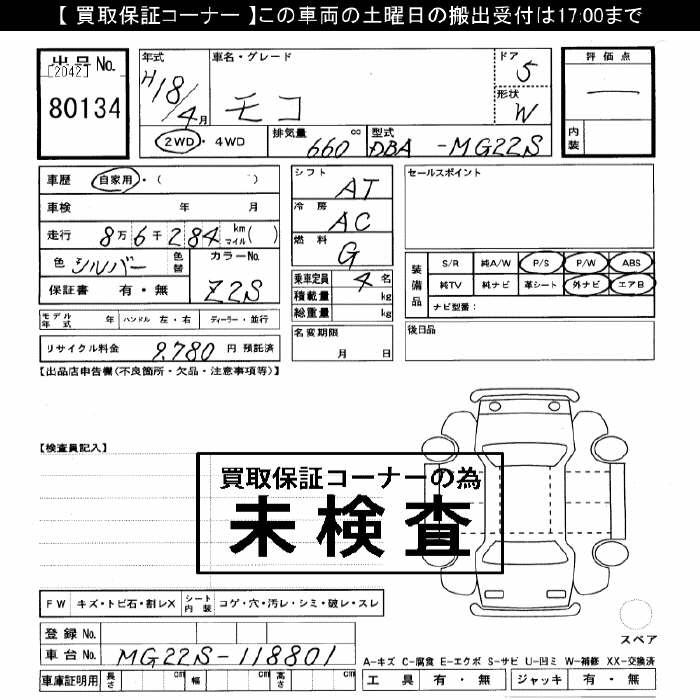 【 買取保証コーナー 】この車両の土曜日の搬出受付は17:00まで
出品No.
[2042]
80134
年式
H18/4月
車名・グレード
モコ
ドア
5
形状
W
評価点
―
内装
2WD・4WD
排気量
660 cc
型式
DBA-MG22S
車歴 自家用・( )
車検 年 月
走行 8万6千284 km マイル( )
色 シルバー 色替
カラーNo.
Z2S
保証書 有・無
シフト
AT
冷房
AC
燃料
G
乗車定員 4名
積載量 kg
総重量 kg
セールスポイント
装備品
S/R 純A/W P/S P/W ABS
純TV 純ナビ 革シート 外ナビ エアB
ナビ型番:
モデル年式 年 ハンドル 左・右 ディーラー・並行
名変期限
月 日
後日品
リサイクル料金 9,780 円 預託済
【出品店申告欄(不良箇所・欠品・注意事項等)】
【検査員記入】
買取保証コーナーの為
未検査
FW キズ・トビ石・割レX シート内装 コゲ・穴・汚レ・シミ・破レ・スレ
スペア
登録No.
車台No. MG22S-118801
車庫証明用 長さ cm 幅 cm 高さ cm
A-キズ C-腐食 E-エクボ S-サビ U-凹ミ W-補修 XX-交換済
工具 有・無 ジャッキ 有・無